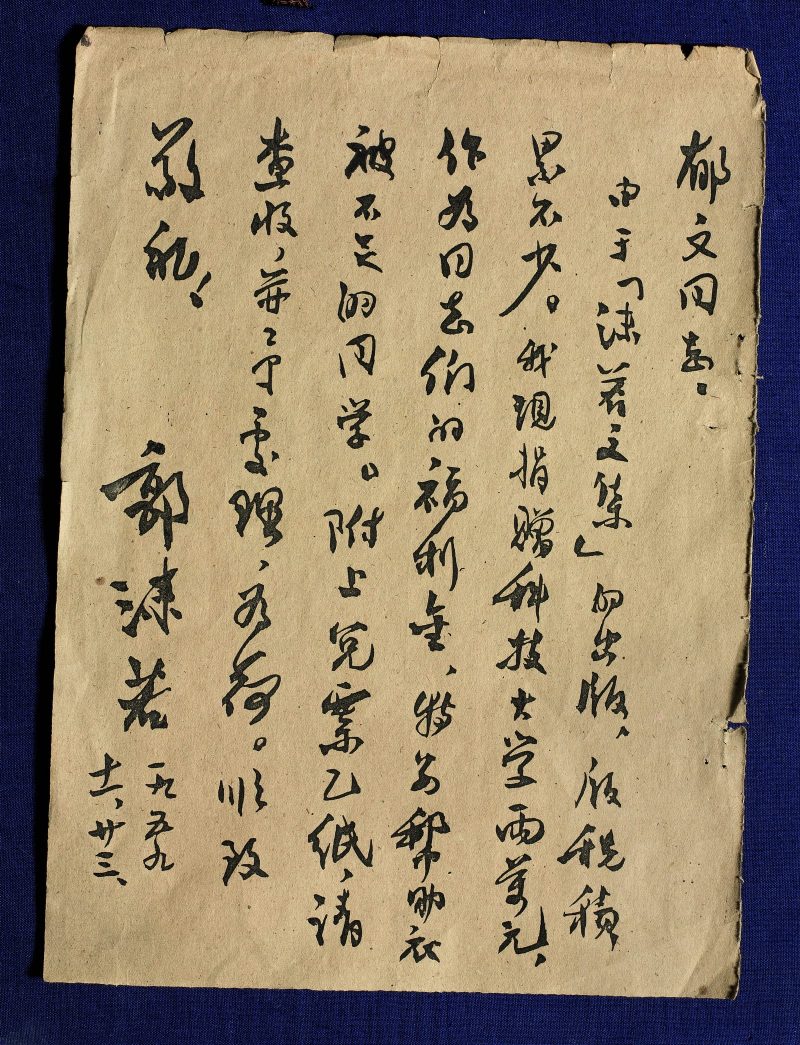 郁文同志：
由于「沫若文集」的出版，版税积
累不少。我现捐赠科技大学两萬元，
作为同志们的福利金，特别帮助衣
被不足的同学。附上兑票乙纸，请
查收，并予处理，为荷。顺致
敬礼！
郭沫若
一九五九
十一，廿三、